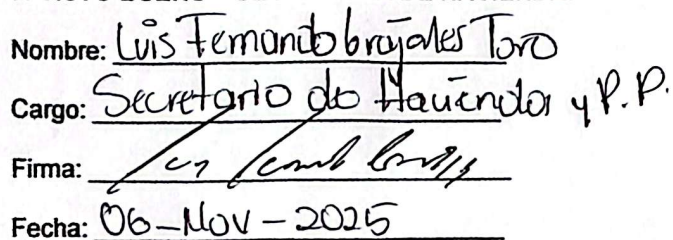 Nombre: Luis Fernando Grajales Toro
Cargo: Secretario de Hacienda y P.P.
Firma:
Fecha: 06-Nov-2025